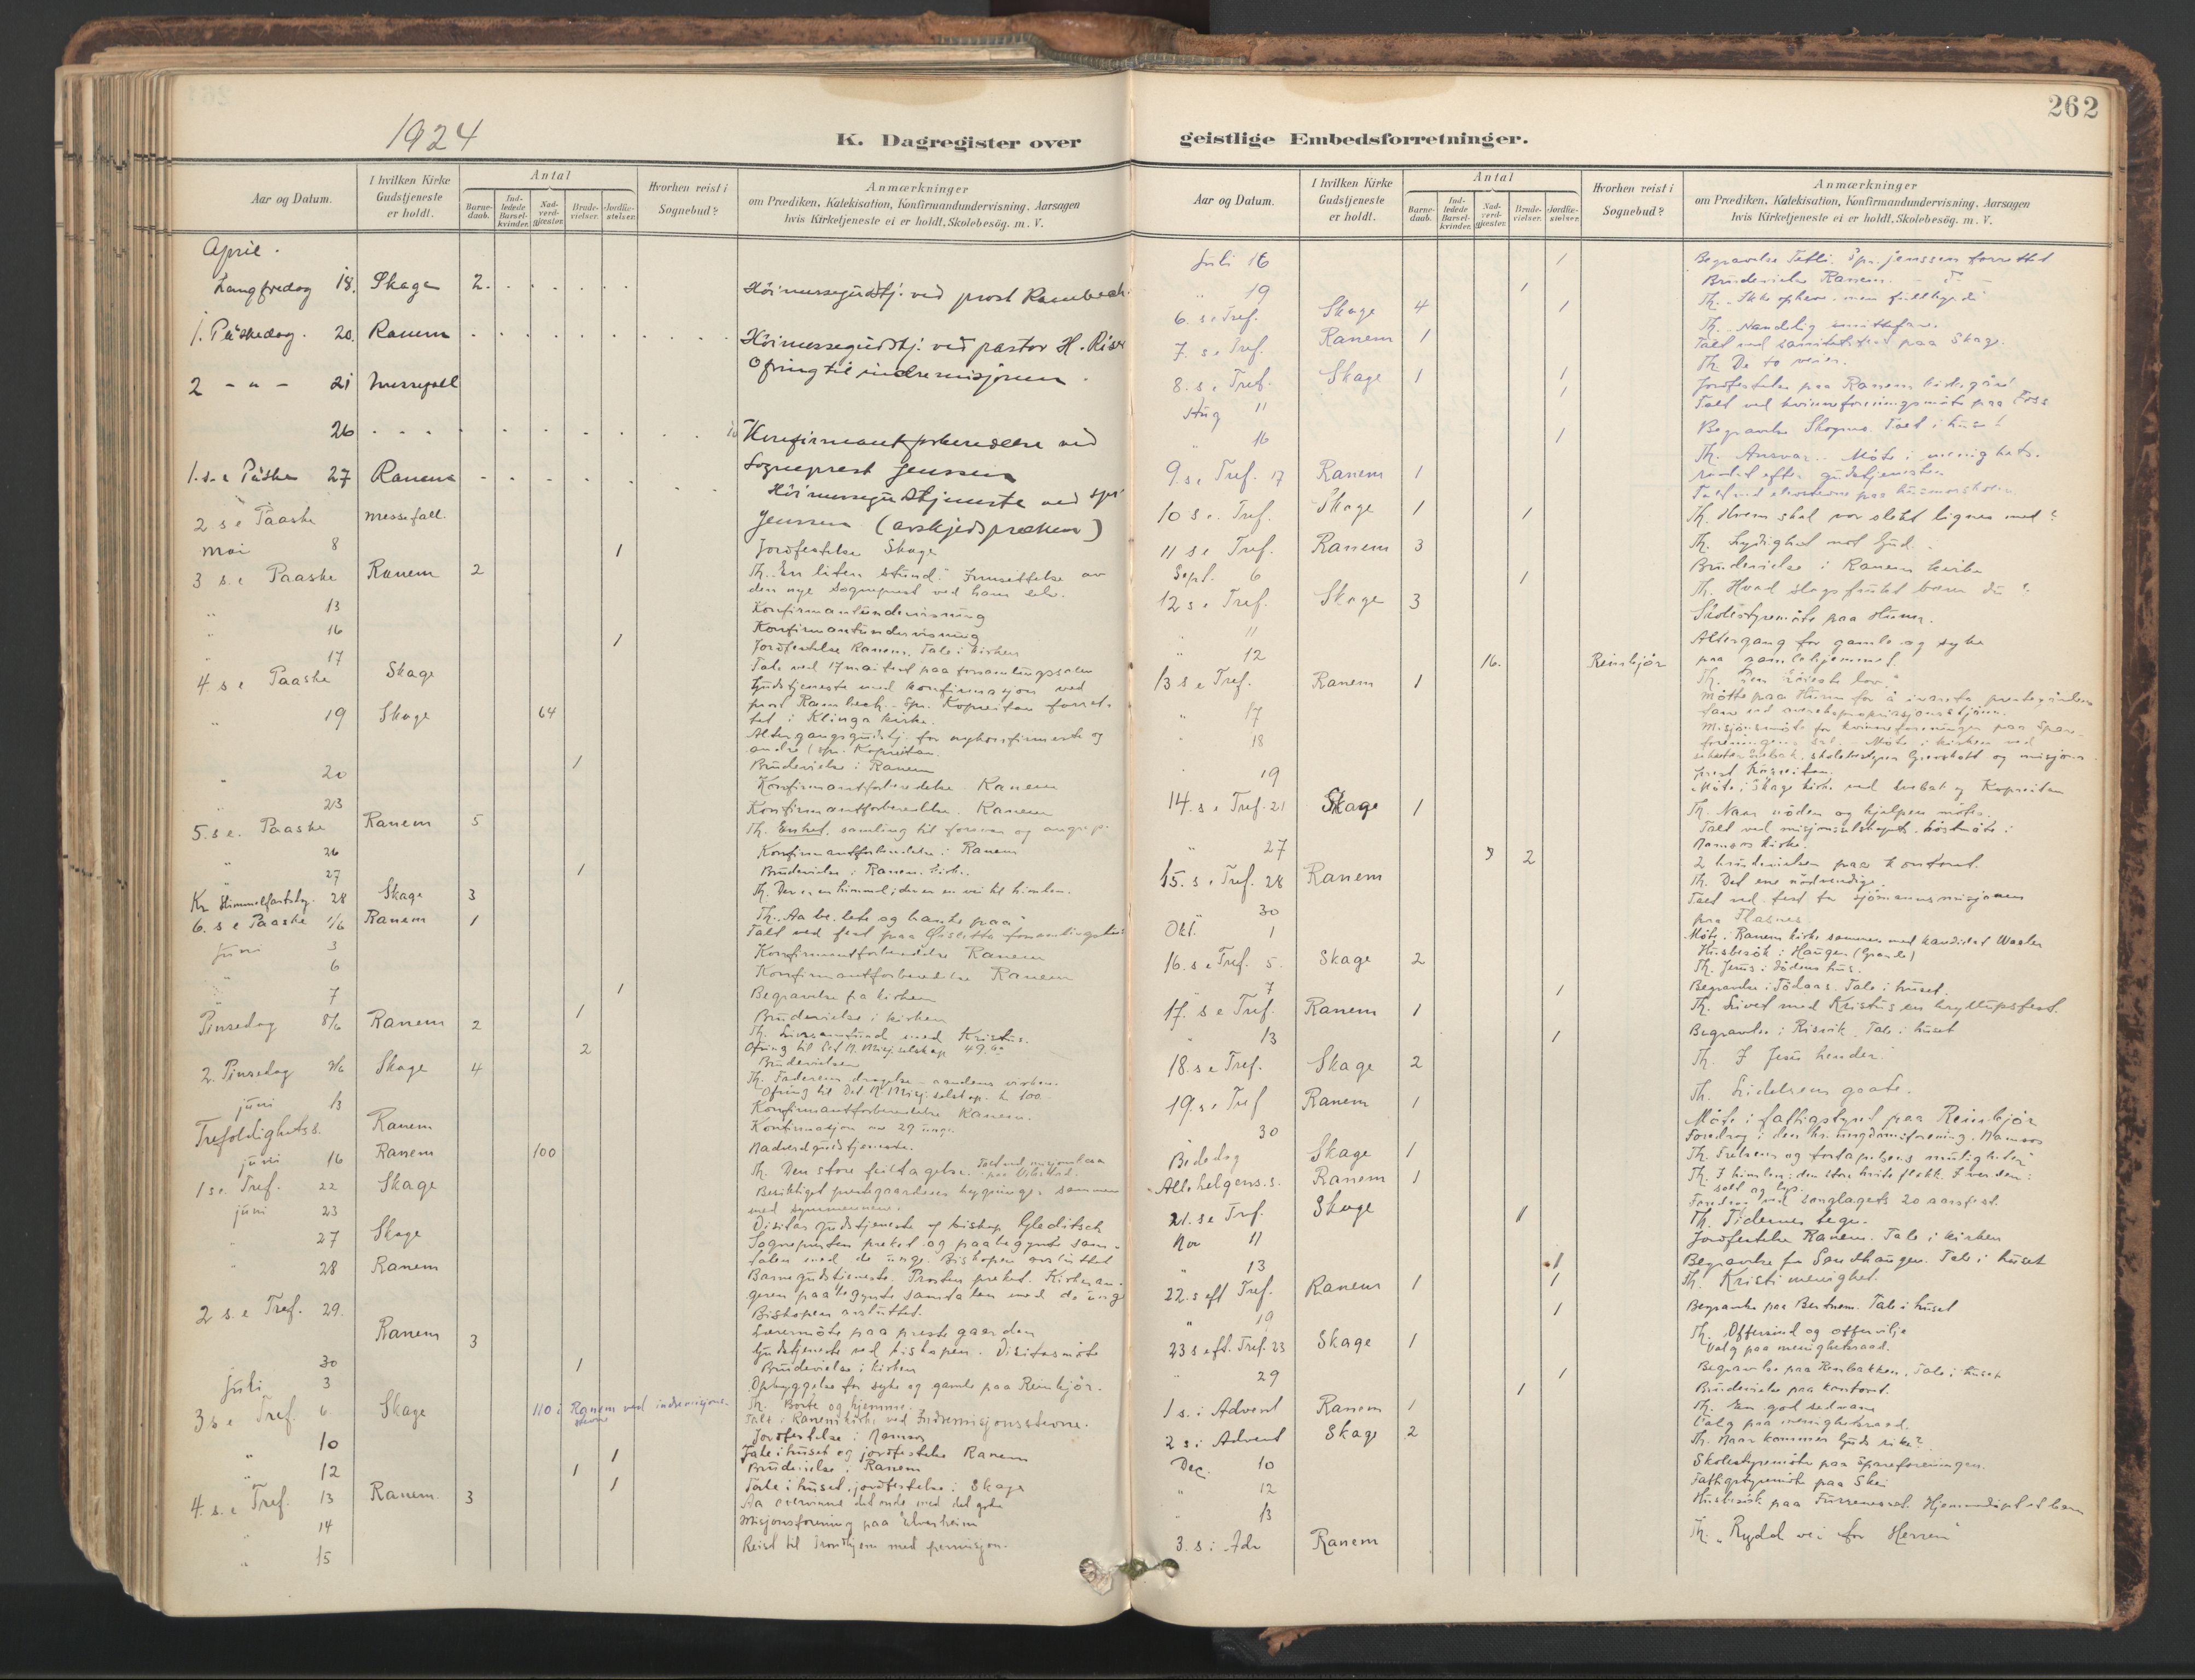 262
1924
K. Dagregister over geistlige Embedsforretninger.
Aar og Datum.
I hvilken Kirke Gudstjeneste er holdt.
Antal
Barne-daab.
Ind-ledede Barsel-kvinder.
Nad-verd-gjester.
Brude-vielser.
Jordfæ-stelser.
Hvorhen reist i Sognebud?
Anmærkninger
om Prædiken, Katekisation, Konfirmandundervisning, Aarsagen
hvis Kirketjeneste ei er holdt, Skolebesög. m. V.
April.
Langfredag 18. Skage 2. Höimessegudstj. ved prost
1. Påskedag. 20. Ranem Höimessegudstj. ved pastor H.
Ofring til indremisjonen
2 - " - 21 Messefall
26 Konfirmantforberedelse ved
Sogneprest Jenssen
1. s. e Påske 27 Ranem Höimessegudstjeneste ved spr
Jenssen (avskjedspræken)
2 s e Paaske Messefall.
Mai 8 1 Jordfestelse Skage
3 s. e Paaske Ranem 2 Th. "En liten stund." Innsettelse av
den nye sogneprest ved ham selv.
" 13 Konfirmantundervisning
" 16 Konfirmantundervisning
1 Jordfestelse Ranem. Tale i kirken
" 17 Tale ved 17 mai fest paa forsamlingssalen
4 s e Paaske Skage Gudstjeneste med konfirmasjon ved
prost Rambech. Spr. Kopreitan forret-
tet i Klinga kirke.
" 19 Skage 64 Altergangsgudstj. for nykonfirmerte og
andre (spr. Kopreitan.
1 Brudevielse i Ranem
" 20 Konfirmantforberedelse Ranem
" 23 Konfirmantforberedelse. Ranem
5. s e. Paaske Ranem 5 Th. Enhet, samling til forsvar og angrep.
" 26 Konfirmantforberedelse i Ranem
" 27 1 Brudevielse i Ranem kirke.
Kr Himmelfartsdg. 28 Skage 3 Th. Der er en himmel; der er en vei til himlen.
6. s e Paaske 1/6 Ranem 1
Talt ved fest paa
Juni 3 Konfirmantforberedelse Ranem
" 6 Konfirmantforberedelse Ranem
" 7 1 Begravelse fra kirken
1 Brudevielse i kirken
Pinsedag 8/6 Ranem 2 Th. Livssamfund med Kristus.
Ofring til Det N. Misj. selskap 49.
2 Brudevielser
2. Pinsedag 9/6 Skage 4 Th. Faderens dragelse - aandens virken.
Ofring til Det N. Misj. selskap. kr 100.
juni 13 Konfirmantforberedelse Ranem.
Trefoldighets s. Ranem Konfirmasjon av 29 unge.
juni 16 Ranem 100 Nadverdgudstjeneste.
1 s e. Tref. 22 Skage Th. Den store feiltagelse.
juni 23 Besiktiget prestegaardens bygninger sammen
med synsmennene.
" 27 Skage Visitasgudstjeneste af biskop Gleditsch
Sognepresten preket og paabegynte sam-
talen med de unge. Biskopen avsluttet
" 28 Ranem Barnegudstjeneste. Prosten preket. Kirkesan-
geren paabegynte samtalen med de unge
Biskopen avsluttet.
2 s. e Tref. 29. Lærermöte paa prestegaarden
Ranem 3 Gudstjeneste ved biskopen. Visitasmöte
30 1 Brudevielse i kirken
Juli 3 Opbyggelse for syke og gamle paa Reinbjör.
3 s e Tref. 6 Skage 110 i Ranem ved indremisjons-stevne Th. Borte og hjemme.
Talt i Ranem kirke ved Indremisjonsstevne.
Jordfestelse i Namsos
" 10 1 Tale i huset og jordfestelse Ranem
" 12 1 Brudevielse i Ranem
1 Tale i huset, jordfestelse i Skage
4. s. e Tref. 13 Ranem 3 Aa overvinne det onde med det gode
" 14 Misjonsforening paa Elverheim
" 15 Reist til Trondhjem med permisjon.
Juli 16 1 Begravelse Tetli. Spr. Jenssen forrettet
" 19 1 Brudevielse Ranem
6. s e Tref. Skage 4 1 Th. Ikke opheve men fullbyrde
7. s e Tref. Ranem 1 Th. Aandelig
Talt ved paa Skage.
8. s e Tref. Skage 1 1 Th. De to veier.
1 Jordfestelse paa Ranem kirkegård
Aug 11 Talt ved kvinneforeningsmöte paa Foss
" 16 1 Begravelse Skogmo. Talt i huset
9. s e Tref. 17 Ranem 1 Th. Ansvar. Möte i menighets-
raadet efter gudstjenesten
Talt ved elevstevne paa husmorskolen.
10 s e. Tref. Skage 1 1 Th. Hvem skal vor slekt lignes med?
11 s e Tref. Ranem 3 Th. Lydighet mot Gud.
Sept. 6 1 Brudevielse i Ranem kirke
12 s e Tref. Skage 3 Th. Hvad slags frukt bærer du?
" 11 Skolestyremöte paa Hunn.
" 12 16. Reinbjör Altergang for gamle og syke
paa gamlehjemmet.
13 s e Tref. Ranem 1 Th. Den höieste lov."
" 17 Mötte paa Hunn for å ivareta prestegårdens
" 18 Misjonsmöte for kvinneforeninger paa Spare-
foreningens sal. Möte i kirken ved
prest Kopreitan.
" 19 Möte i Skage kirke ved og Kopreitan
14. s. e Tref. 21 Skage 1 Th. Naar nöden og hjelpen mötes.
Talt ved misjonsselskapets höstmöte i
Namsos kirke.
" 27 2 2 brudevielser paa kontoret.
15. s. e Tref. 28 Ranem Th. Det ene nödvendige
" 30 Talt ved fest for sjömannsmisjonen
paa Flasnes
Okt. 1 Möte i Ranem kirke sammen med kandidat
Husbesök i Haugen (Grande)
16. s e Tref. 5. Skage 2 Th. Jesus i dödens hus.
7 1 Begravelse i Tödaas. Tale i huset.
17. s e Tref. Ranem 1 Th. Livet med Kristus en bryllupsfest.
" 13 1 Begravelse i Risvik. Tale i huset
18. s e Tref. Skage 2 Th. I Jesu hender.
19. s e Tref Ranem 1 Th. Lidelsens gaate.
30 Möte i fattigstyret paa Reinbjör
Foredrag i den kr. ungdomsforening. Namsos
Bededag Skage 1 Th. Frelsens og fortapelsens muligheter
Alle helgens. s. Ranem 1 Th. I himlen: den store hvite flokk. I verden:
salt og lys.
Foredrag ved sanglagets 20 aarsfest.
21. s e Tref. Skage 1 Th. Tidernes tegn.
Nov 11 Jordfestelse Ranem. Tale i kirken
" 13 1 Begravelse fra Sandhaugen. Tale i huset
22. s eft Tref. Ranem 1 1 Th. Kristi menighet.
" 19 1 Begravelse paa Bertnem. Tale i huset
23 s eft. Tref. 23 Skage 1 Th. Offersind og offervilje
Valg paa menighetsraad.
" 29 1 Begravelse paa Tale i huset
1 Brudevielse paa kontoret.
1 s. i Advent Ranem 1 Th. En god sedvane
Valg paa menighetsraad.
2 s. i Advent Skage 2 Th. Naar kommer Guds rike?
Dec. 10 Skolestyremöte paa Spareforeningen.
" 12 Fattigstyremöte paa Skei
" 13 Husbesök paa
3. s i Adv Ranem Th. "Rydd vei for Herren"